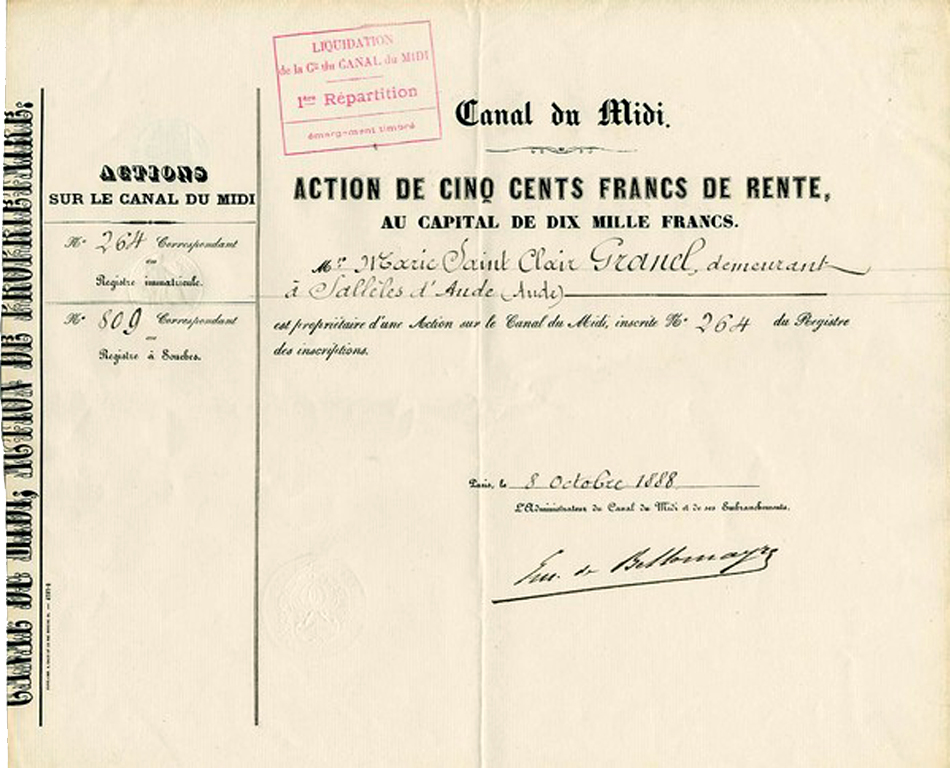 LIQUIDATION
de la Cie du CANAL du MIDI
1ère Répartition
émargement timbré
Canal du Midi.
ACTION DE CINQ CENTS FRANCS DE RENTE,
AU CAPITAL DE DIX MILLE FRANCS.
Mr Marie Saint Clair Granel, demeurant
à Sallèles d'Aude (Aude)
est propriétaire d'une Action sur le Canal du Midi, inscrite No 264 du Registre
des inscriptions.
Paris, le 8 Octobre 1888
L'Administrateur du Canal du Midi et de ses Embranchements.
Em. de Bellomayre
ACTIONS
SUR LE CANAL DU MIDI
No 264 Correspondant
au
Registre immatricule.
No 809 Correspondant
au
Registre à Souches.
CANAL DU MIDI, ACTION DE PROPRIÉTAIRE.